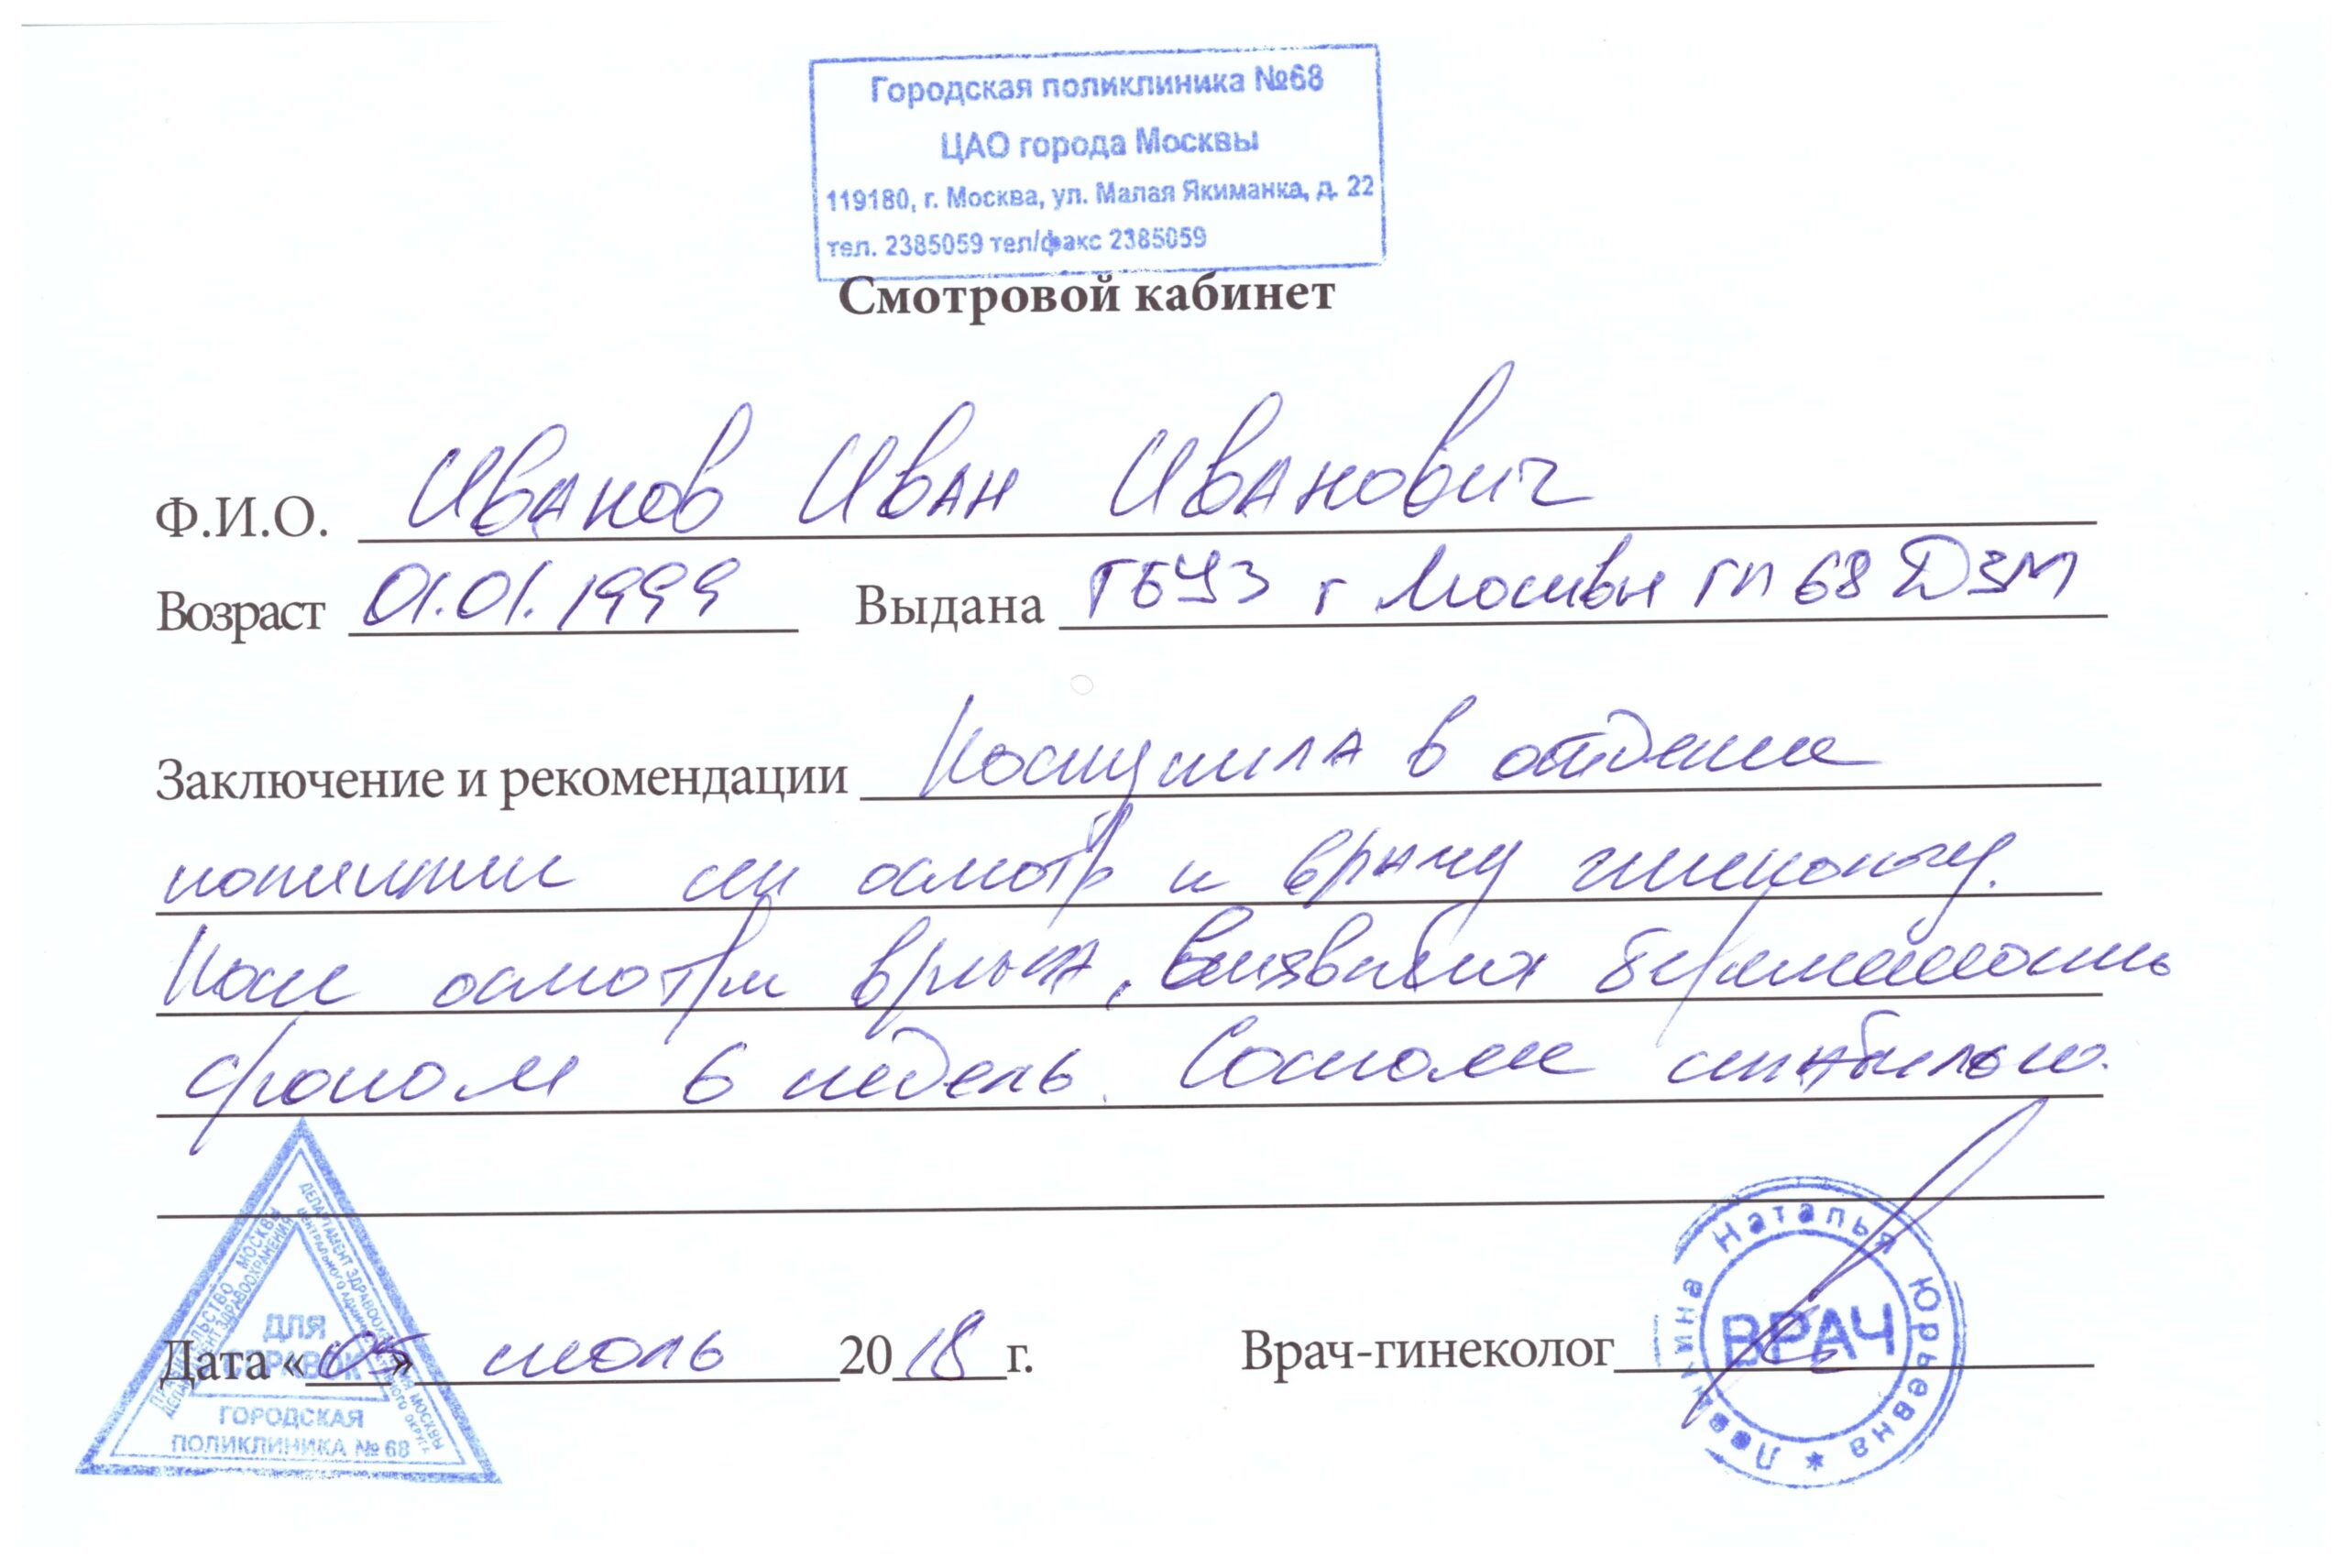 Городская поликлиника №68
ЦАО города Москвы
119180, г. Москва, ул. Малая Якиманка, д. 22
тел. 2385059 тел/факс 2385059
Смотровой кабинет
Ф.И.О. Иванов Иван Иванович
Возраст 01.01.1999 Выдана ГБУЗ г Москвы ГП 68 ДЗМ
Заключение и рекомендации Поступила в
осмотр к врачу гинекологу.
После осмотра врача, беременность
сроком 6 недель. стабильно.
ПРАВИТЕЛЬСТВО МОСКВЫ
ДЕПАРТАМЕНТ ЗДРАВООХРАНЕНИЯ
ДЕПАРТАМЕНТ ЗДРАВООХРАНЕНИЯ МОСКВЫ
ЦЕНТРАЛЬНОГО АДМИНИСТРАТИВНОГО ОКРУГА
ДЛЯ
СПРАВОК
ГОРОДСКАЯ
ПОЛИКЛИНИКА № 68
Дата «05» июль 2018 г. Врач-гинеколог
Наталья Юрьевна *
ВРАЧ